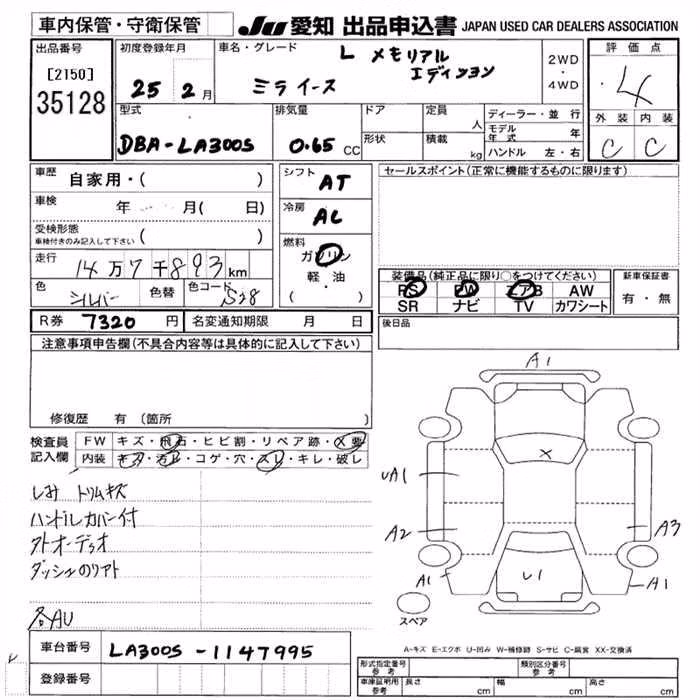 車内保管・守衛保管
JU 愛知 出品申込書 JAPAN USED CAR DEALERS ASSOCIATION
出品番号
[2150]
35128
初度登録年月
25 2 月
車名・グレード
L メモリアル
エディション
ミライース
2WD
・
4WD
評価点
4
外装 内装
C C
型式
DBA-LA300S
排気量
0.65 CC
ドア
形状
定員
人
積載
kg
ディーラー・並 行
モデル年式 年
ハンドル 左・右
車歴
自家用・( )
車検
年 月( 日)
受検形態
車検付きのみ記入して下さい ( )
走行
14万7千893km
色
シルバー
色替
色コード
S28
シフト
AT
冷房
AC
燃料
ガソリン
軽・油
( ・ )
セールスポイント(正常に機能するものに限ります)
装備品(純正品に限り○をつけてください)
PS PW エアB AW
SR ナビ TV カワシート
新車保証書
有・無
後日品
R券 7320 円 名変通知期限 月 日
注意事項申告欄(不具合内容等は具体的に記入して下さい)
修復歴 有(箇所 )
検査員
記入欄
FW キズ・飛石・ヒビ割・リペア跡・X要
内装 キズ・汚れ・コゲ・穴・スレ・キレ・破レ
しみ トリムキズ
ハンドルカバー付
外オーディオ
各AU
A1
X
UA1
A2
A3
A1
U1
A1
スペア
A-キズ E-エクボ U-凹み W-補修跡 S-サビ C-腐食 XX-交換済
車台番号 LA300S-1147995
登録番号
形式指定番号
参考
類別区分番号
参考
車庫証明用
参考
長さ cm 幅 cm 高さ cm